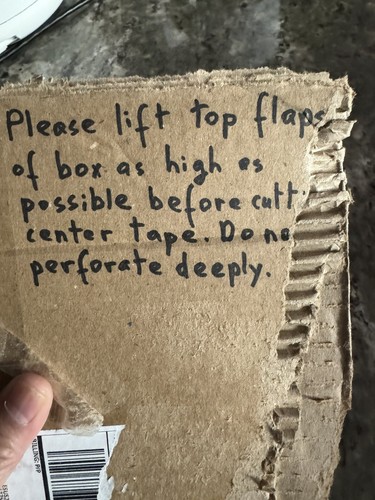 Please lift top flaps
of box as high as
possible before cutt
center tape. Do no
perforate deeply.